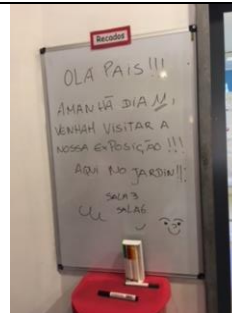 Recados
OLÁ PAIS!!!
AMANHÃ DIA 11,
VENHAM VISITAR A
NOSSA EXPOSIÇÃO!!!
AQUI NO JARDIM!!:
SALA 3
SALA 6